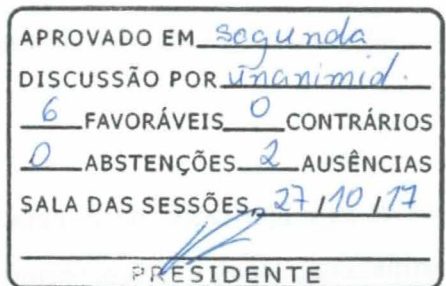 APROVADO EM segunda
DISCUSSÃO POR unanimid.
6 FAVORÁVEIS 0 CONTRÁRIOS
0 ABSTENÇÕES 2 AUSÊNCIAS
SALA DAS SESSÕES, 27/10/17
PRESIDENTE